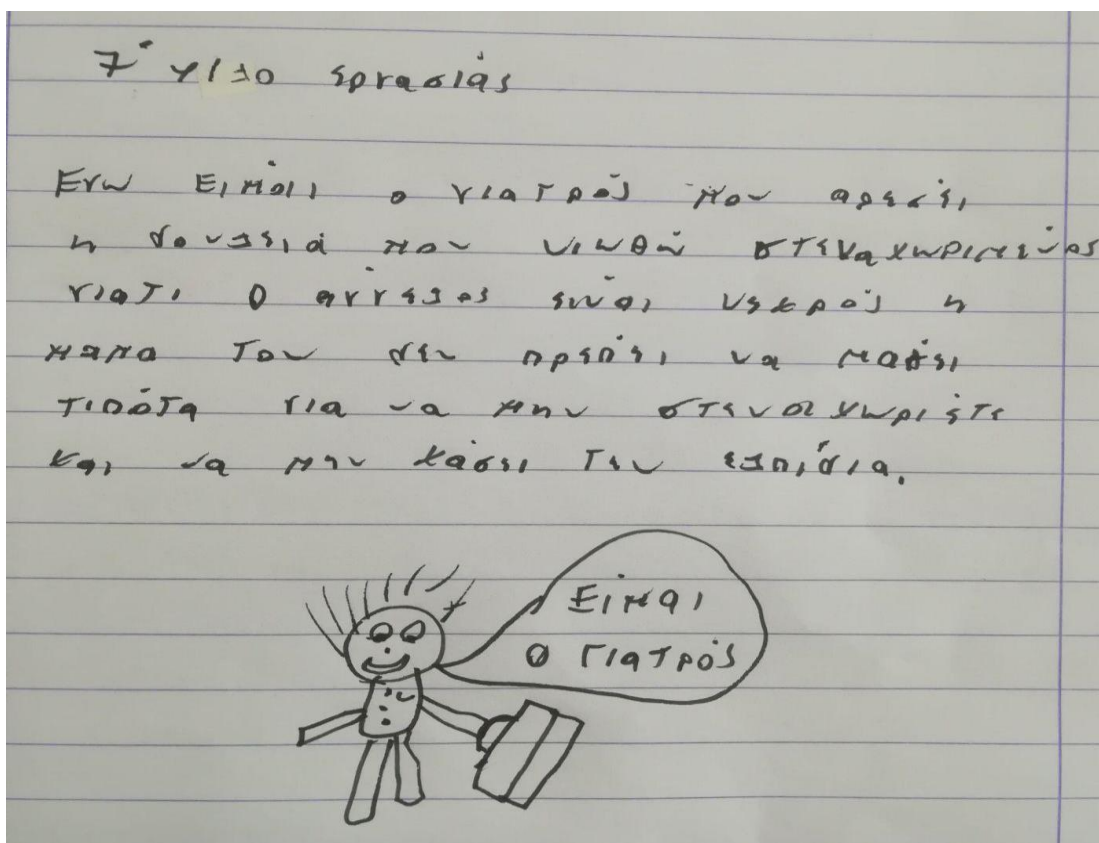 7° φύλλο εργασίας
Εγω Είμαι ο γιατρός μου αρεσει
η δουλειά μου νιωθω στεναχωριμενος
γιατι Ο αγγελος είναι νεκρός η
μαμα Του δεν πρεπει να μαθει
τιποτα για να μην στεναχωριέτε
και να μην χάσει Την ελπιδια.
Είμαι
Ο Γιατρός